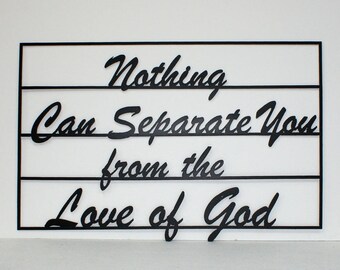 Nothing
Can Separate You
from the
Love of God